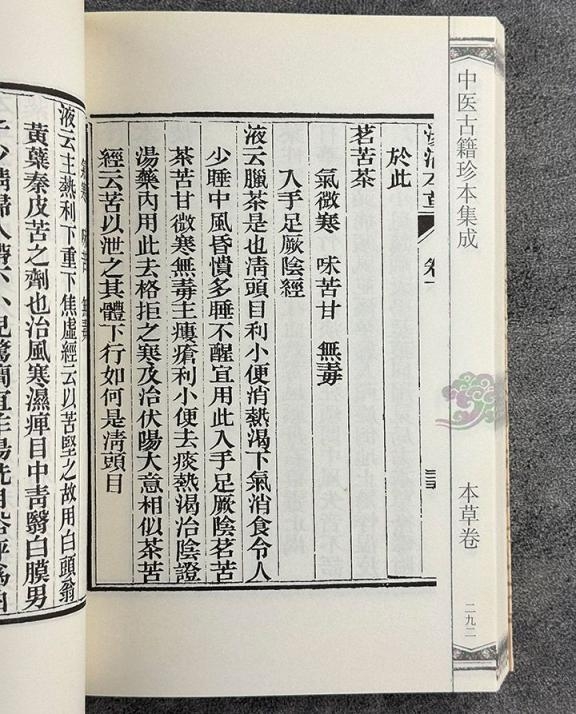 中医古籍珍本集成
本草卷
二九二
湯液本草 卷
於此
茗苦茶
氣微寒 味苦甘 無毒
入手足厥陰經
液云臘茶是也清頭目利小便消熱渴下氣消食令人
少睡中風昏憒多睡不醒宜用此入手足厥陰茗苦
茶苦甘微寒無毒主瘻瘡利小便去痰熱渴治陰證
湯藥內用此去格拒之寒及治伏陽大意相似茶苦
經云苦以泄之其體下行如何是清頭目
氣寒 味苦 無毒
液云主熱利下重下焦虛經云以苦堅之故用白頭翁
黃蘗秦皮苦之劑也治風寒濕痺目中青翳白膜男
子少精婦人帶下小兒驚癇宜作湯洗目俗呼為白